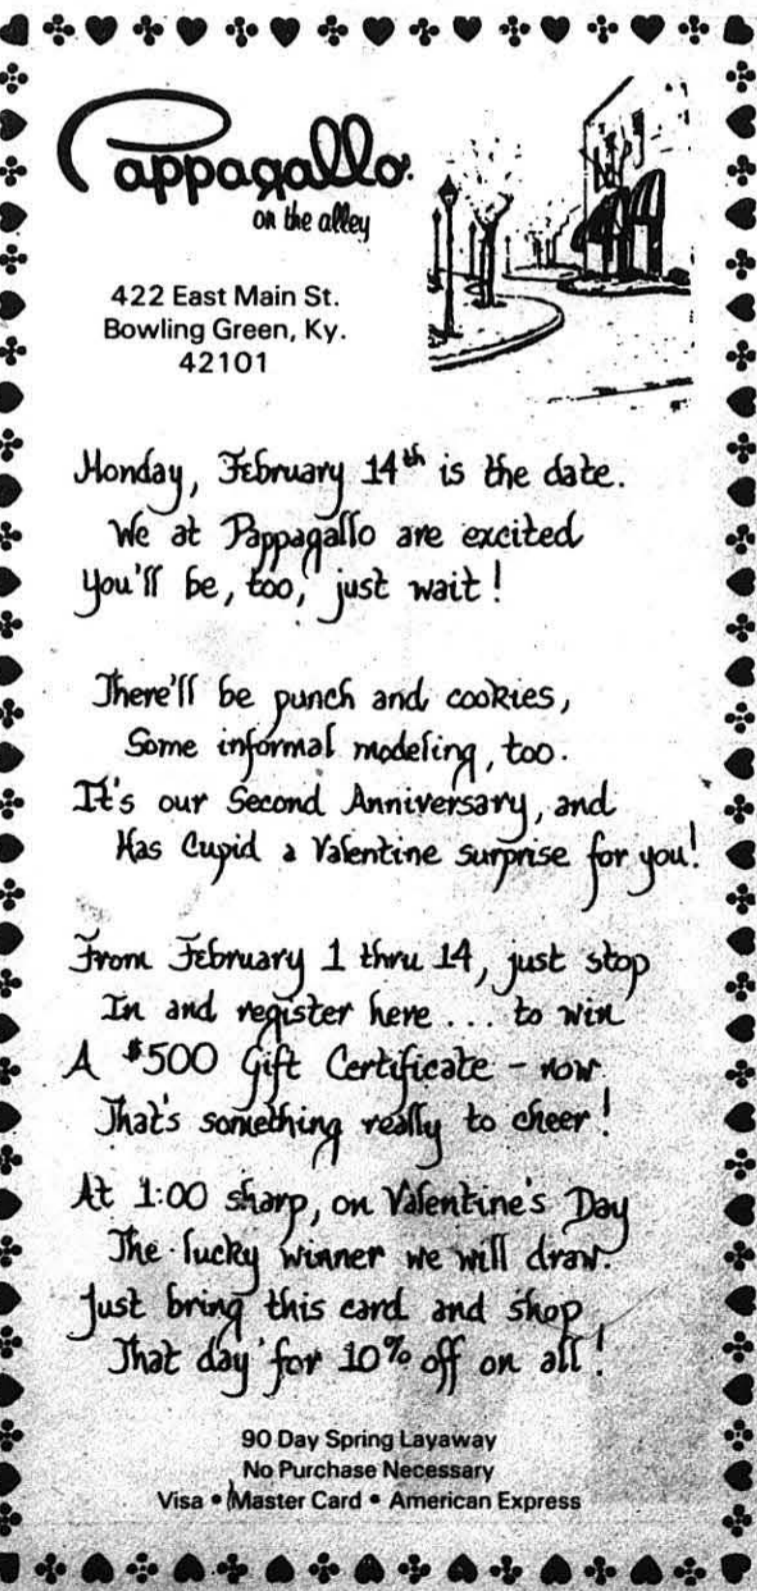 Pappagallo
on the alley
422 East Main St.
Bowling Green, Ky.
42101
Monday, February 14th is the date.
We at Pappagallo are excited
You'll be, too, just wait!
There'll be punch and cookies,
Some informal modeling, too.
It's our Second Anniversary, and
Has Cupid a Valentine surprise for you!
From February 1 thru 14, just stop
In and register here... to win
A $500 Gift Certificate - now
That's something really to cheer!
At 1:00 sharp, on Valentine's Day
The lucky winner we will draw.
Just bring this card and shop
That day for 10% off on all!
90 Day Spring Layaway
No Purchase Necessary
Visa • Master Card • American Express